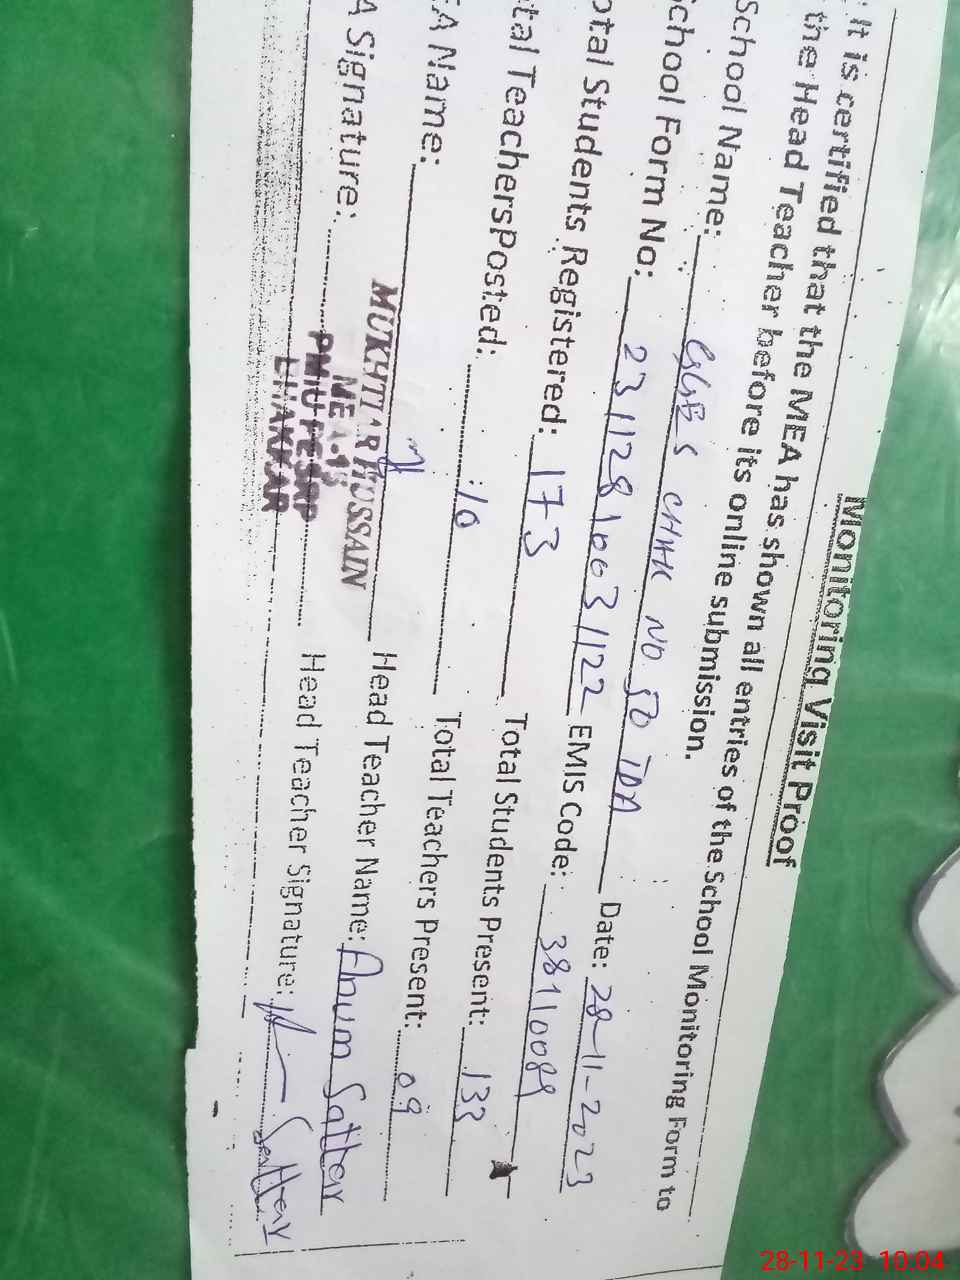 Monitoring Visit Proof
: It is certified that the MEA has shown all entries of the School Monitoring Form to
the Head Teacher before its online submission.
School Name: GGES CHAK NO 50 TDA Date: 28-11-2023
School Form No: 23112810031122 EMIS Code: 38110089
otal Students Registered: 173 Total Students Present: 133
tal TeachersPosted: 10 Total Teachers Present: 09
EA Name: Head Teacher Name: Anum Sattar
MUKHTIAR HUSSAIN
MEA-15
PMIU-PESRP
BHAKKAR
A Signature: Head Teacher Signature: Sattar
28-11-23 10:04